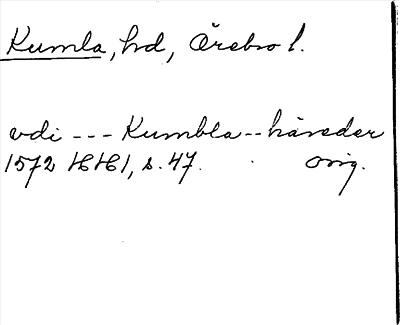 Kumla, hd, Örebro l.
vdi --- Kumbla -- häreder
1572 HH1, s. 47. orig.